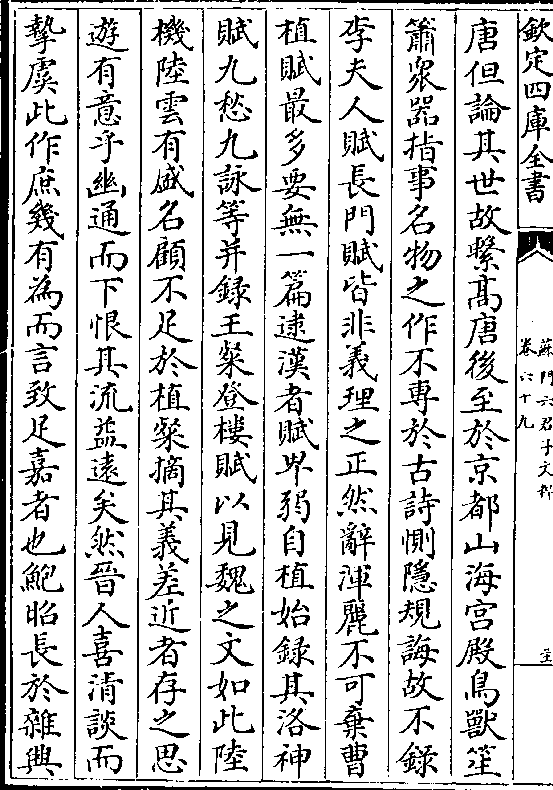 欽定四庫全書
蘇門六君子文粹
卷六十九
唐但論其世故繫髙唐後至於京都山海宫殿鳥獸笙
簫衆器指事名物之作不専於古詩惻隠規誨故不錄
李夫人賦長門賦皆非義理之正然辭渾麗不可棄曹
植賦最多要無一篇逮漢者賦卑弱自植始録其洛神
賦九愁九詠等并録王粲登樓賦以見魏之文如此陸
機陸雲有盛名顧不足於植粲摘其義差近者存之思
遊有意乎幽通而下恨其流益遠矣然晉人喜清談而
摯虞此作庶幾有為而言致足嘉者也鮑昭長於雜興